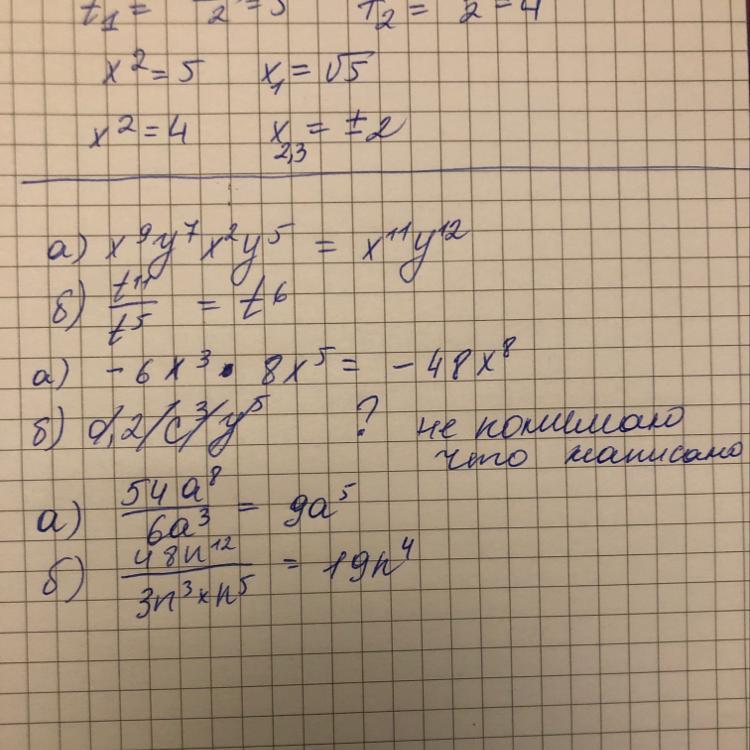 t₁ = 2 = 5 t₂ = 2 = 4
x² = 5 x₁ = √5
x² = 4 x₂,₃ = ±2
а) x⁹y⁷x²y⁵ = x¹¹y¹²
б) t¹¹/t⁵ = t⁶
а) -6x³ · 8x⁵ = -48x⁸
б) ? не понимаю
что написано
а) 54a⁸/6a³ = 9a⁵
б) 48n¹²/3n³×n⁵ = 19n⁴